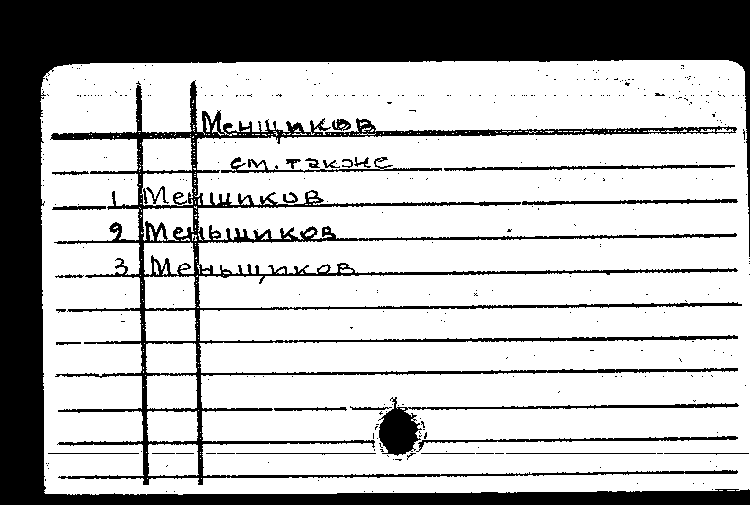 Менщиков
см. также
1. Меншиков
2 Меньшиков
3. Меньщиков